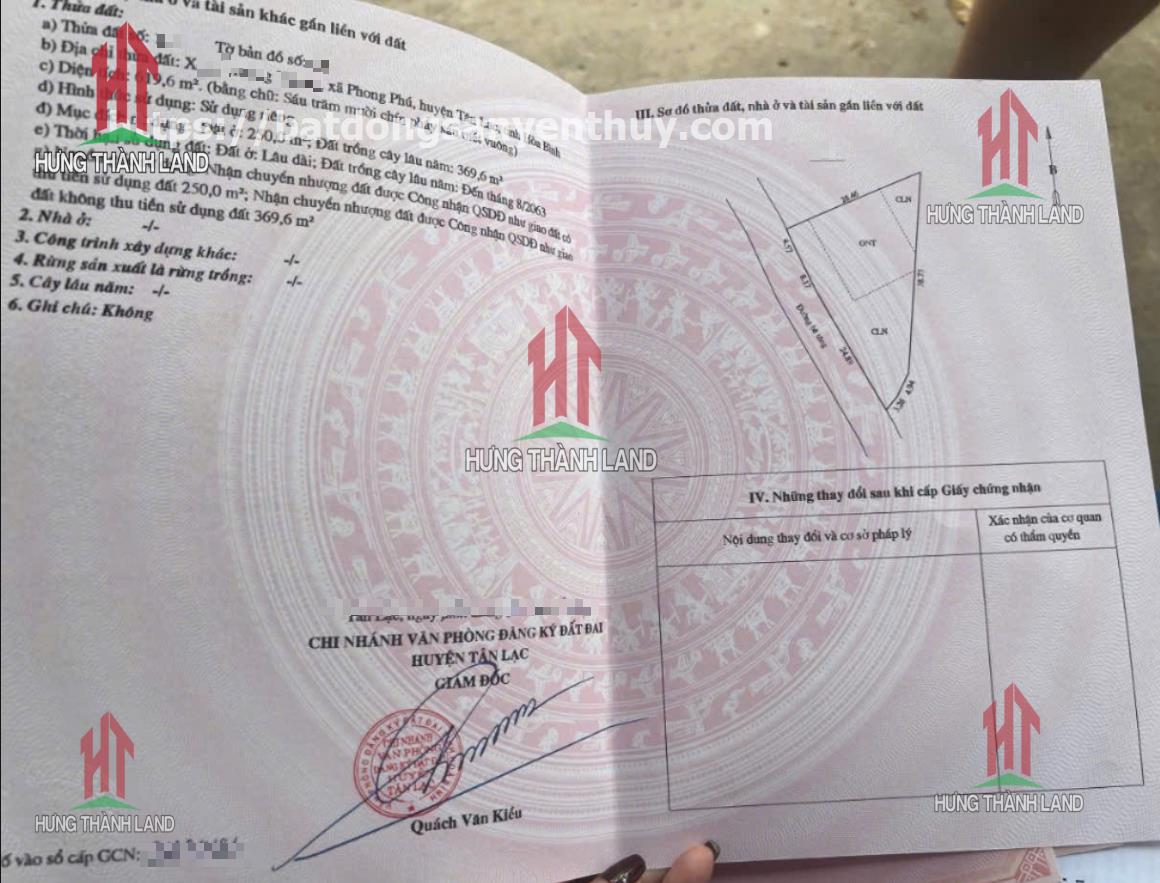 ở và tài sản khác gắn liền với đất
1. Thửa đất:
a) Thửa đất số: Tờ bản đồ số:
b) Địa chỉ thửa đất: X xã Phong Phú, huyện Tân Lạc, tỉnh Hòa Bình
c) Diện tích: 619,6 m². (bằng chữ: Sáu trăm mười chín phẩy sáu mét vuông)
d) Hình thức sử dụng: Sử dụng riêng
đ) Mục đích sử dụng: Đất ở: 250,0 m²; Đất trồng cây lâu năm: 369,6 m²
e) Thời hạn sử dụng đất: Đất ở: Lâu dài; Đất trồng cây lâu năm: Đến tháng 8/2063
Nhận chuyển nhượng đất được Công nhận QSDĐ như giao đất có
thu tiền sử dụng đất 250,0 m²; Nhận chuyển nhượng đất được Công nhận QSDĐ như giao
đất không thu tiền sử dụng đất 369,6 m²
2. Nhà ở: -/-
3. Công trình xây dựng khác: -/-
4. Rừng sản xuất là rừng trồng: -/-
5. Cây lâu năm: -/-
6. Ghi chú: Không
https://batdongsanyenthuy.com
HT
HƯNG THÀNH LAND
CHI NHÁNH VĂN PHÒNG ĐĂNG KÝ ĐẤT ĐAI
HUYỆN TÂN LẠC
GIÁM ĐỐC
CHI NHÁNH
VĂN PHÒNG
ĐĂNG KÝ ĐẤT ĐAI
HUYỆN
TÂN LẠC
Quách Văn Kiều
số vào sổ cấp GCN:
HT
HƯNG THÀNH LAND
HT
HƯNG THÀNH LAND
III. Sơ đồ thửa đất, nhà ở và tài sản gắn liền với đất
B
CLN
ONT
4.57
8.37
CLN
Đường bê tông
24.89
4.94
3.26
HT
HƯNG THÀNH LAND
IV. Những thay đổi sau khi cấp Giấy chứng nhận
Nội dung thay đổi và cơ sở pháp lý
Xác nhận của cơ quan
có thẩm quyền
HT
HƯNG THÀNH LAND